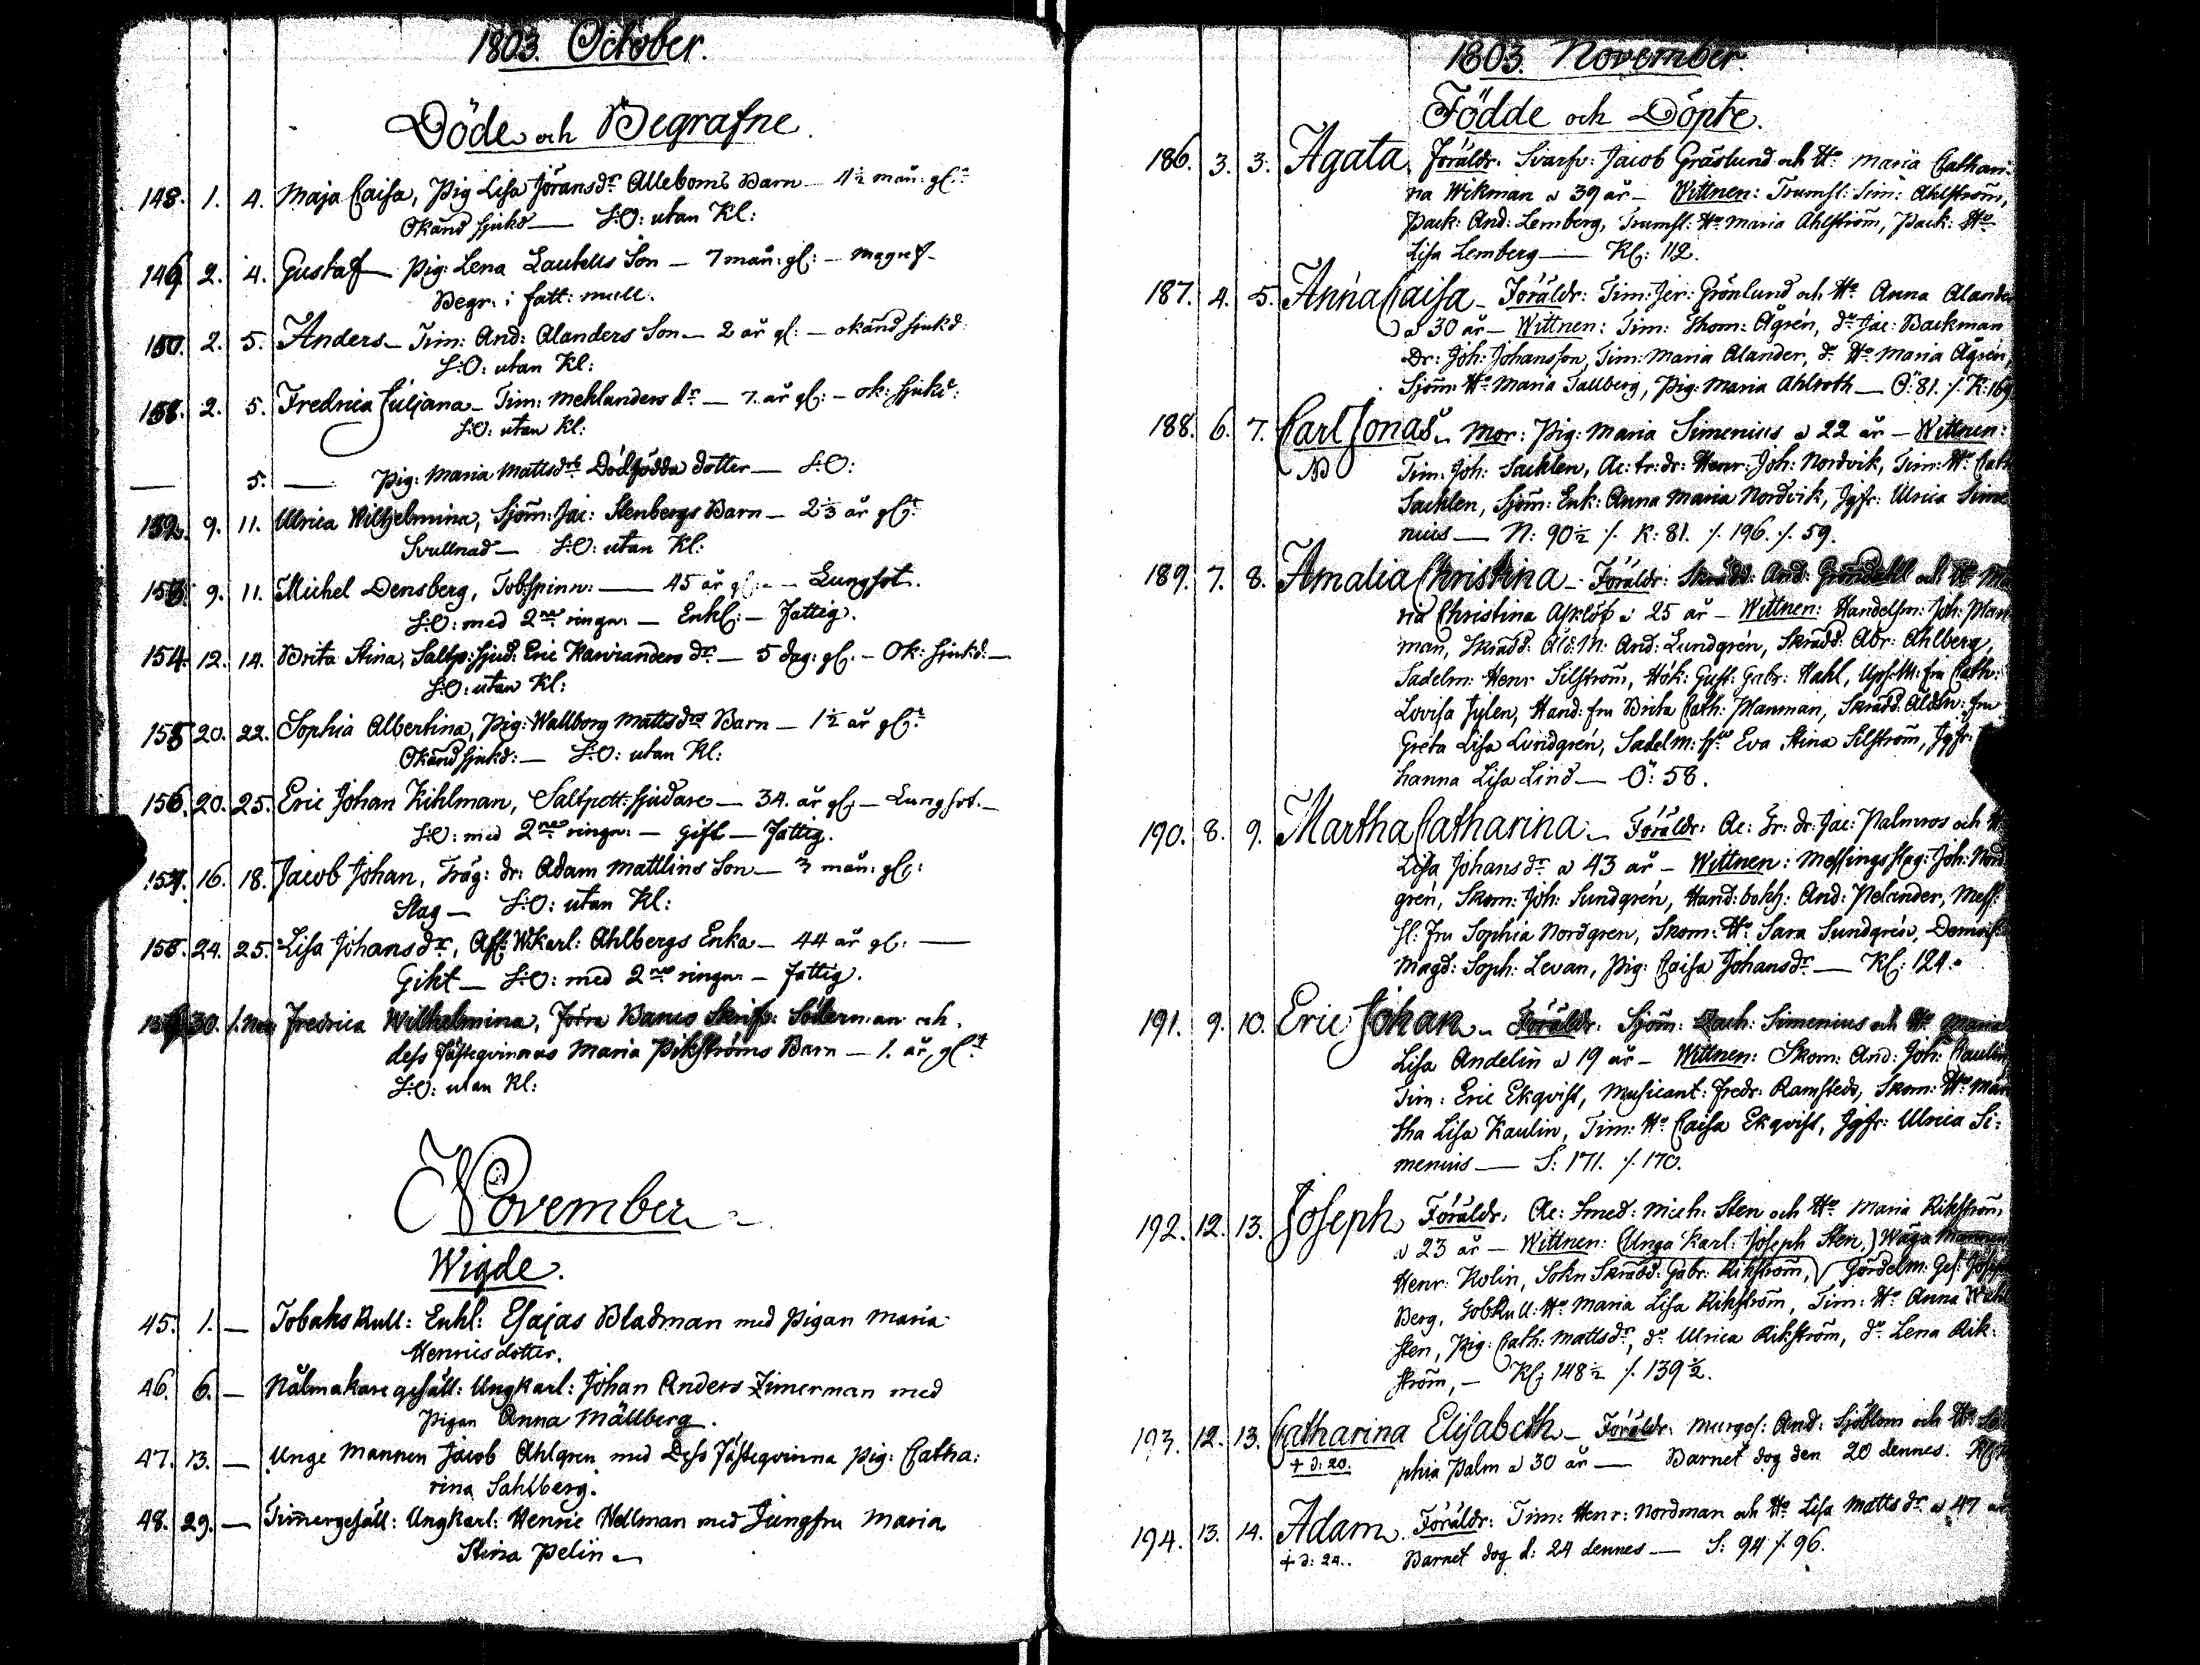 1803. October.
Döde och Begrafne.
148. 1. 4. Maja Caisa, Pig Lisa Jöransdr Alleboms Barn — 4½ mån: gl:
Okänd sjukd — S:O: utan Kl:
149. 2. 4. Gustaf Pig: Lena Lautells Son — 7 mån: gl: —
Begr: i fatt: mull.
150. 2. 5. Anders — Tim: And: Alanders Son — 2 år gl: — okänd sjukd:
S:O: utan Kl:
151. 2. 5. Fredrica Juljana — Tim: Mehlanders dr — 7. år gl: — ok: sjukd:
S:O: utan Kl:
— 5. — Pig: Maria Mattsdrs Dödfödda dotter — S:O:
152. 9. 11. Ulrica Wilhelmina, Sjöm: Jac: Stenbergs Barn — 2⅓ år gl:
Svullnad — S:O: utan Kl:
153. 9. 11. Michel Densberg, Tobspinn: — 45 år gl: — Lungsot.
S:O: med 2ne ringn: — Enkl: — Fattig.
154. 12. 14. Brita Stina, Saltp: sjud: Eric Karvianders dr — 5 dag: gl: — Ok: sjukd. —
S:O: utan Kl:
155 20. 22. Sophia Albertina, Pig: Wallborg Mattsdrs Barn — 1½ år gl:
Okänd sjukd: — S:O: utan Kl:
156. 20. 25. Eric Johan Kihlman, Saltpett: sjudare — 34. år gl — Lungsot. —
S:O: med 2ne ringn: — gift — Fattig.
157. 16. 18. Jacob Johan, Träg: dr: Adam Mattlins Son — 3 mån: gl:
Slag — S:O: utan Kl:
158. 24. 25. Lisa Johansdr, Afl: W:karl: Ahlbergs Enka — 44 år gl: —
Gikt — S:O: med 2ne ringn: — fattig.
159. 30. 1. Nov. Fredrica Wilhelmina, Förra Banco Skrifv: Söderman och
dess Fästeqvinnas Maria Pikströms Barn — 1. år gl:
S:O: utan Kl:
November
Wigde.
45. 1. — Tobaks Rull: Enkl: Esajas Bladman med Pigan Maria
Henricsdotter.
46. 6. — Nålmakare gesäll: Ungkarl: Johan Anders Zimerman med
Pigan Anna Mällberg.
47. 13. — Unge Mannen Jacob Ahlgren med Dess Fästeqvinna Pig: Catha:
rina Sahlberg.
48. 29. — Timergesäll: Ungkarl: Henric Hellman med Jungfru Maria
Stina Pelin
1803. November.
Födde och Döpte.
186. 3. 3. Agata. Föräldr: Svarfv: Jacob Gräslund och Ho Maria Cathari:
na Wikman a 39 år — Wittnen: Trumsl: Sim: Ahlström,
Pack: And: Lemberg, Trumsl: Ho Maria Ahlström, Pack: Ho
Lisa Lemberg — Kl: 112.
187. 4. 5. Anna Caisa — Föräldr: Tim: Jer: Grönlund och Ho Anna Alander
a 30 år — Wittnen: Tim: Thom: Ågrén, do Jac: Backman
Dr: Joh: Johansson, Tim: Maria Alander, do Ho Maria Ågrén,
Sjöm: Ho Maria Tallberg, Pig: Maria Ahlroth — Ö: 81. /. K: 169
188. 6. 7. Carl Jonas. Mor: Pig: Maria Simenius a 22 år — Wittnen:
Tim: Joh: Sacklen, Ac: tr: dr: Henr: Joh: Nordvik, Tim: Ho Cath
Sacklen, Sjöm: Enk: Anna Maria Nordvik, Jgfr: Ulrica Sime
nius — N: 90½ /. K: 81. /. 196. /. 59.
189. 7. 8. Amalia Christina — Föräldr: Skrädd: And: Gröndahl och Ho Ma
ria Christina Asklöf a 25 år — Wittnen: Handelsm: Joh: Man
man, Skrädd: Åld:M: And: Lundgrén, Skrädd: Abr: Ahlberg,
Sadelm: Henr Silström, Hök: Gust: Gabr: Hahl, fru Cath:
Lovisa Jylen, Hand: fru Brita Cath: Manman, Skrädd: Åldm: fru
Greta Lisa Lundgrén, Sadelm: Eva Stina Silström, Jgfr:
hanna Lisa Lind — Ö: 58.
190. 8. 9. Martha Catharina — Föräldr: Ac: Tr: dr: Jac: Palmros och
Lisa Johansdr a 43 år — Wittnen: Messingsslag: Joh: Nord
grén, Skom: Joh: Sundgrén, Hand: bokh: And: Nelander, Mess:
sl: Fru Sophia Nordgren, Skom: Ho Sara Sundgrén, Demois
Magd: Soph: Levan, Pig: Caisa Johansdr — Kl: 124.
191. 9. 10. Eric Johan — Föräldr: Sjöm: Zach: Simenius och Ho Maria
Lisa Andelin a 19 år — Wittnen: Skom: And: Joh: Kaulin
Tim: Eric Ekqvist, Musicant: Fredr: Ramstedt, Skom: Ho Mar
tha Lisa Kaulin, Tim: Ho Caisa Ekqvist, Jgfr: Ulrica Si:
menius — S: 171. /. 170.
192. 12. 13. Joseph Föräldr: Ac: Smed: Mich: Sten och Ho Maria Rikström
a 23 år — Wittnen: (Unga Karl: Joseph Sten,) Wåga Mannen
Henr: Kolin, Sokn Skrädd: Gabr: Rikström, Gördelm: Ges: Joseph
Berg, TobRull: Ho Maria Lisa Rikström, Tim: Ho Anna Wahl
sten, Pig: Cath: Mattsdr, do Ulrica Rikström, do Lena Rik:
ström, — Kl: 148½ /. 139½.
193. 12. 13. Catharina Elisabeth — Föräldr: Murges: And: Sjöblom och Ho So
+ d: 20. phia Palm a 30 år — Barnet dog den 20 dennes.
194. 13. 14. Adam. Föräldr: Tim: Henr: Nordman och Ho Lisa Mattsdr a 47 år
+ d: 24. Barnet dog d: 24 dennes — S: 94 /. 96.